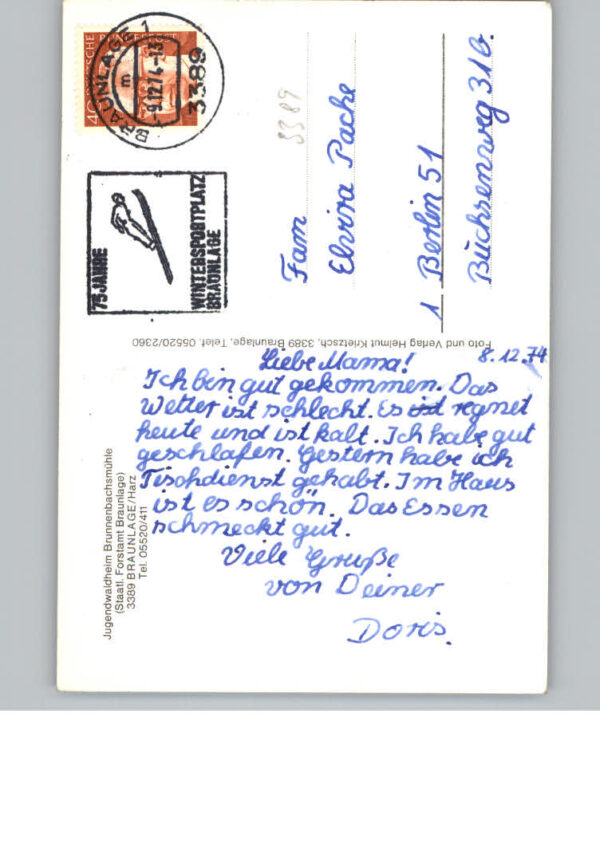 8.12.74
Liebe Mama!
Ich bin gut gekommen. Das
Wetter ist schlecht. Es ist regnet
heute und ist kalt. Ich habe gut
geschlafen. Gestern habe ich
Tischdienst gehabt. Im Haus
ist es schön. Das Essen
schmeckt gut.
Viele Grüße
von Deiner
Doris.
Jugendwaldheim Brunnenbachsmühle
(Staatl. Forstamt Braunlage)
3389 BRAUNLAGE/Harz
Tel. 05520/411
Foto und Verlag Helmut Krietzsch, 3389 Braunlage, Telef. 05520/2360
BRAUNLAGE 1
m
-9.12.74-13
3389
40
75 JAHRE
WINTERSPORTPLATZ
BRAUNLAGE
3389
Fam
Elvira Pache
1 Berlin 51
Büchsenweg 31b.